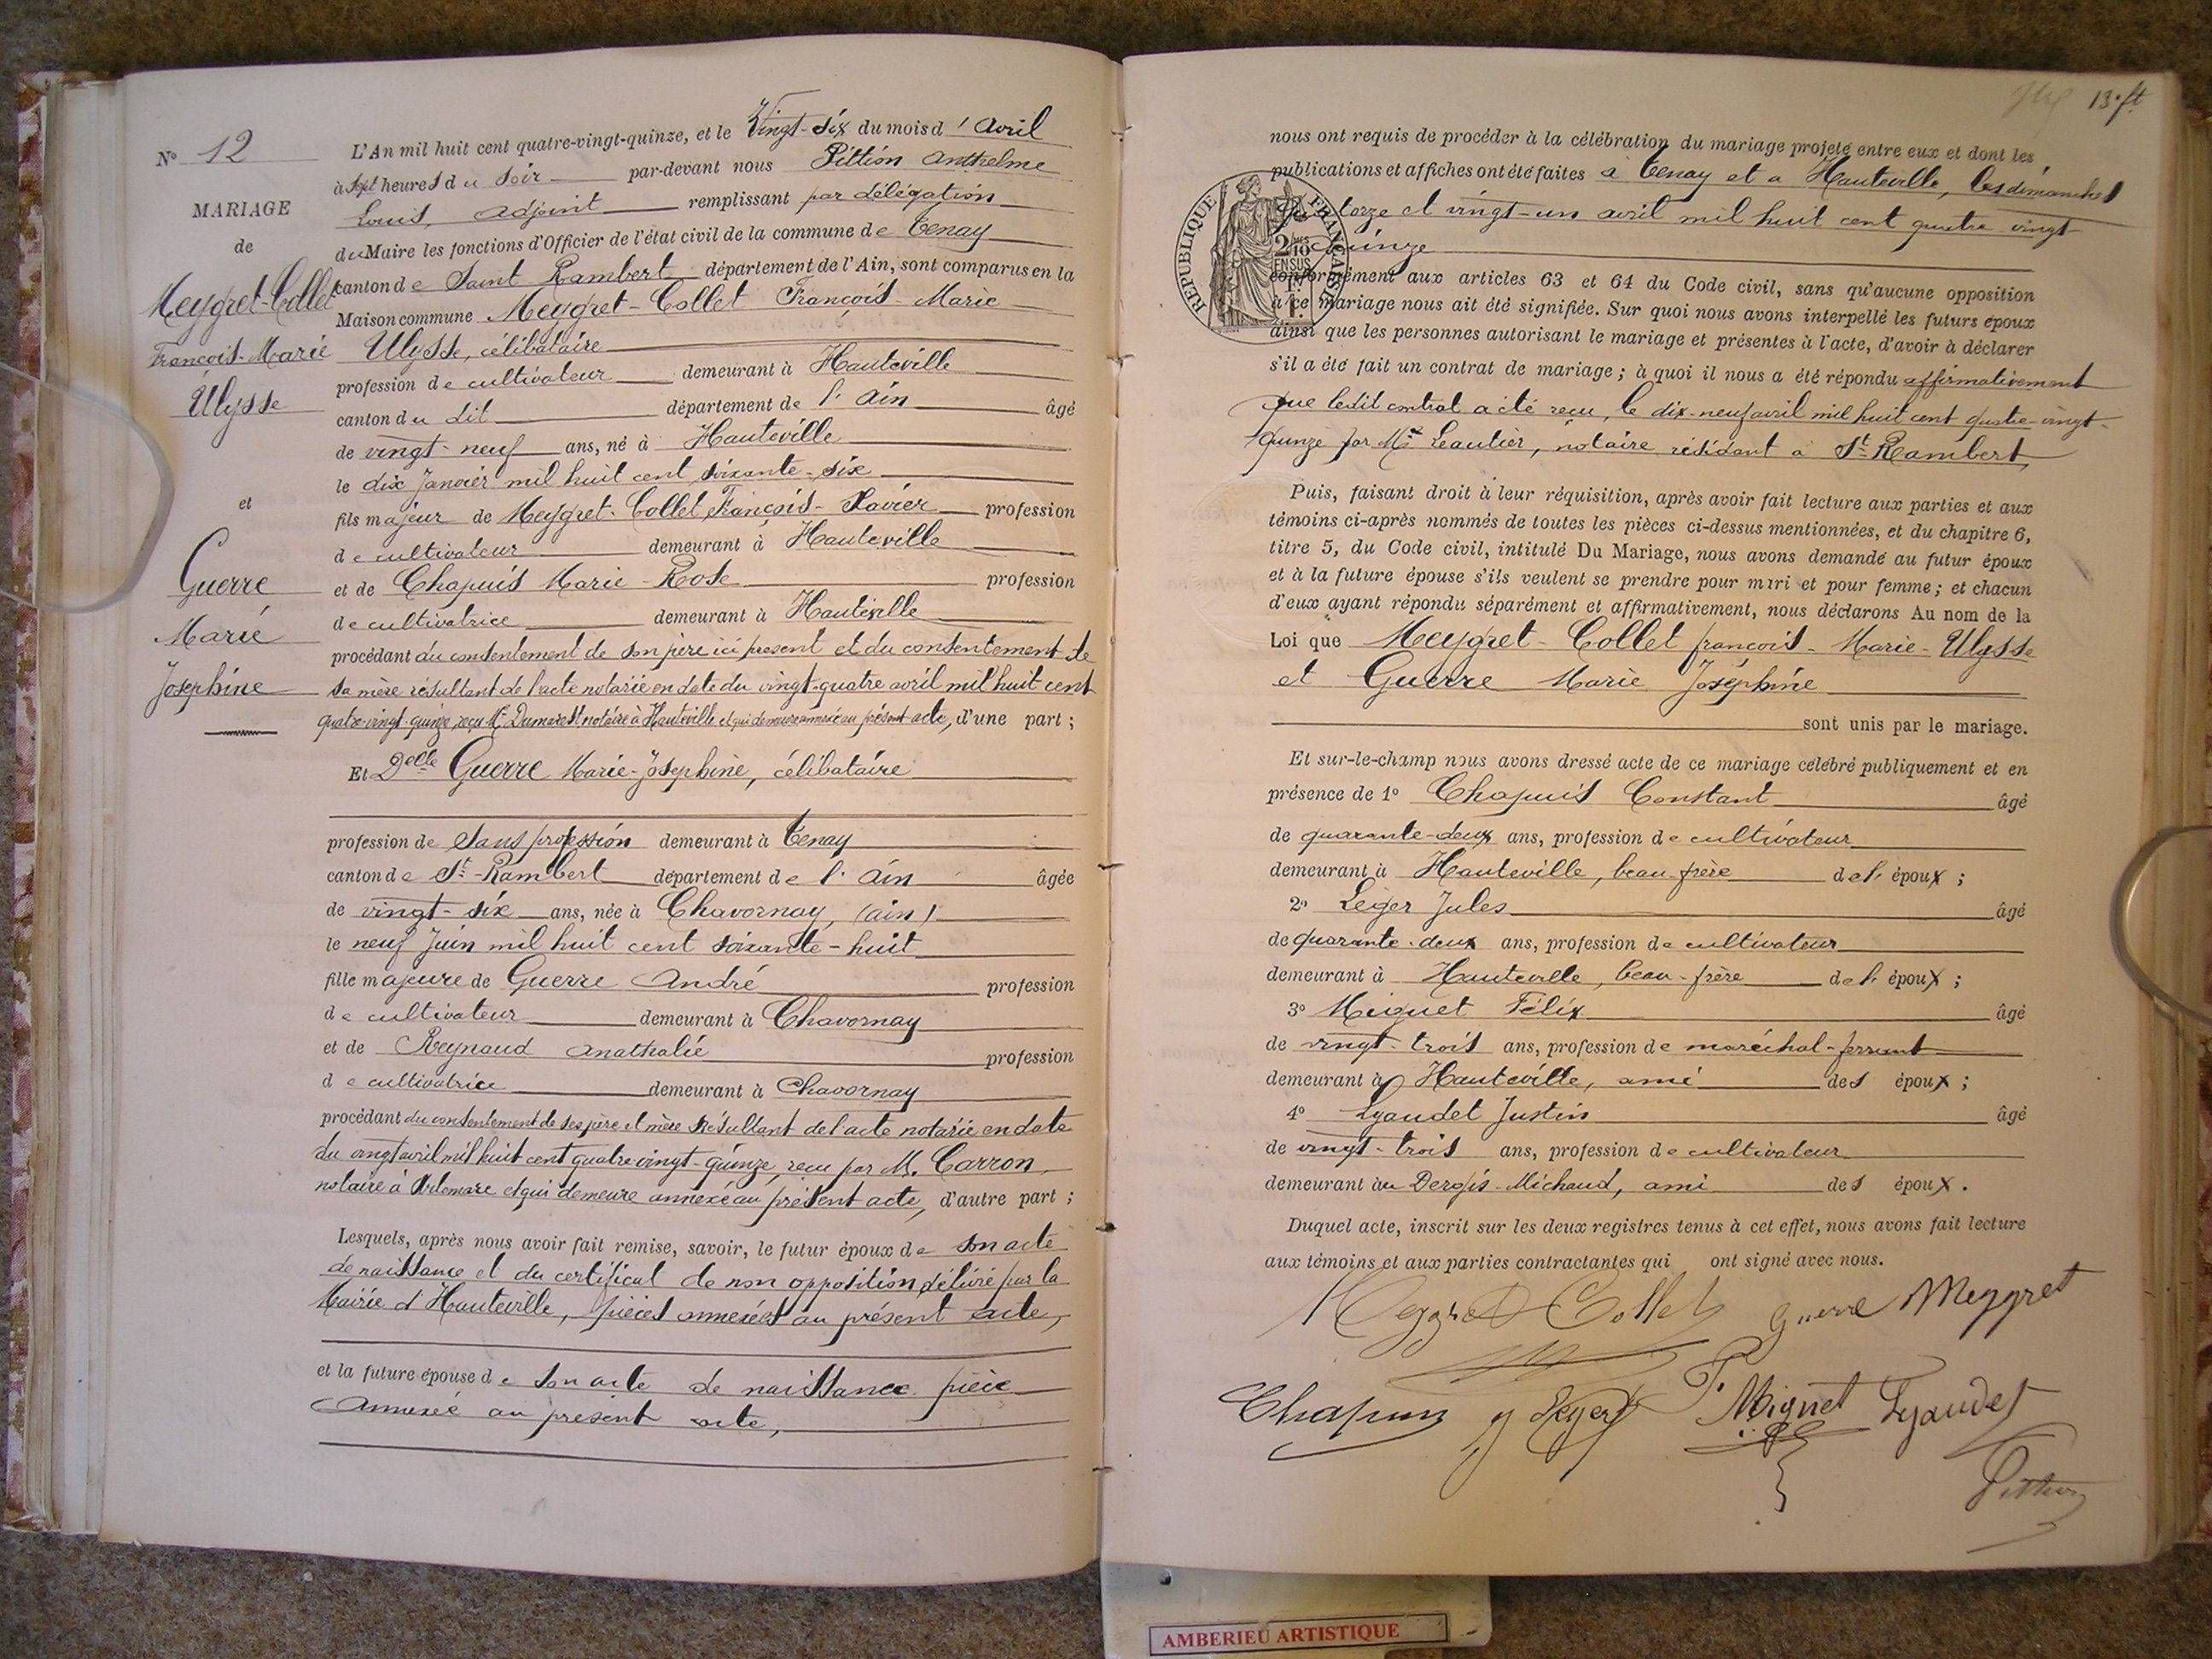 N° 12
MARIAGE
de
Meygret-Collet
François-Marie
Ulysse
et
Guerre
Marie
Joséphine
L'An mil huit cent quatre-vingt-quinze, et le Vingt-six du mois d'Avril
à sept heures du soir par-devant nous Pittion Anthelme
Louis, adjoint remplissant par délégation
du Maire les fonctions d'Officier de l'état civil de la commune de Tenay
canton de Saint Rambert département de l'Ain, sont comparus en la
Maison commune Meygret-Collet François-Marie
Ulysse, célibataire
profession de cultivateur demeurant à Hauteville
canton du dit département de l'Ain âgé
de vingt-neuf ans, né à Hauteville
le dix Janvier mil huit cent soixante-six
fils majeur de Meygret-Collet François-Xavier profession
de cultivateur demeurant à Hauteville
et de Chapuis Marie-Rose profession
de cultivatrice demeurant à Hauteville
procédant du consentement de son père ici présent et du consentement de
sa mère résultant de l'acte notarié en date du vingt-quatre avril mil huit cent
quatre-vingt-quinze, reçu Me notaire à Hauteville et qui demeure annexé au présent acte, d'une part ;
Et Delle Guerre Marie-Joséphine, célibataire
profession de sans profession demeurant à Tenay
canton de St-Rambert département de l'Ain âgée
de vingt-six ans, née à Chavornay, (ain)
le neuf Juin mil huit cent soixante-huit
fille majeure de Guerre André profession
de cultivateur demeurant à Chavornay
et de Reynaud Anathalie profession
de cultivatrice demeurant à Chavornay
procédant du consentement de ses père et mère résultant de l'acte notarié en date
du vingt avril mil huit cent quatre vingt-quinze, reçu par M. Carron
notaire à Artemare et qui demeure annexé au présent acte, d'autre part ;
Lesquels, après nous avoir fait remise, savoir, le futur époux de son acte
de naissance et du certificat de non opposition délivré par la
Mairie d'Hauteville, pièces annexées au présent acte,
et la future épouse de son acte de naissance pièce
annexée au présent acte,
13. ft
nous ont requis de procéder à la célébration du mariage projeté entre eux et dont les
publications et affiches ont été faites à Tenay et a Hauteville, les dimanches
quatorze et vingt-un avril mil huit cent quatre vingt
quinze
RÉPUBLIQUE FRANÇAISE
2/10 EN SUS
conformément aux articles 63 et 64 du Code civil, sans qu'aucune opposition
à ce mariage nous ait été signifiée. Sur quoi nous avons interpellé les futurs époux
ainsi que les personnes autorisant le mariage et présentes à l'acte, d'avoir à déclarer
s'il a été fait un contrat de mariage ; à quoi il nous a été répondu affirmativement
que ledit contrat a été reçu, le dix-neuf avril mil huit cent quatre-vingt-
quinze par Me Leautier, notaire résidant à St-Rambert,
Puis, faisant droit à leur réquisition, après avoir fait lecture aux parties et aux
témoins ci-après nommés de toutes les pièces ci-dessus mentionnées, et du chapitre 6,
titre 5, du Code civil, intitulé Du Mariage, nous avons demandé au futur époux
et à la future épouse s'ils veulent se prendre pour mari et pour femme ; et chacun
d'eux ayant répondu séparément et affirmativement, nous déclarons Au nom de la
Loi que Meygret-Collet françois-Marie-Ulysse
et Guerre Marie Joséphine
sont unis par le mariage.
Et sur-le-champ nous avons dressé acte de ce mariage célébré publiquement et en
présence de 1° Chapuis Constant âgé
de quarante-deux ans, profession de cultivateur
demeurant à Hauteville, beau-frère de l'époux ;
2° Leiger Jules âgé
de quarante-deux ans, profession de cultivateur
demeurant à Hauteville, beau-frère de l'époux ;
3° Miguet Félix âgé
de vingt-trois ans, profession de maréchal-ferrant
demeurant à Hauteville, ami des époux ;
4° Lyaudet Justin âgé
de vingt-trois ans, profession de cultivateur
demeurant au Dergis-Michaud, ami des époux.
Duquel acte, inscrit sur les deux registres tenus à cet effet, nous avons fait lecture
aux témoins et aux parties contractantes qui ont signé avec nous.
Meygret Collet guerre Meygret
Chapuis J Léger F. Miguet Lyaudet
Pittion
AMBERIEU ARTISTIQUE